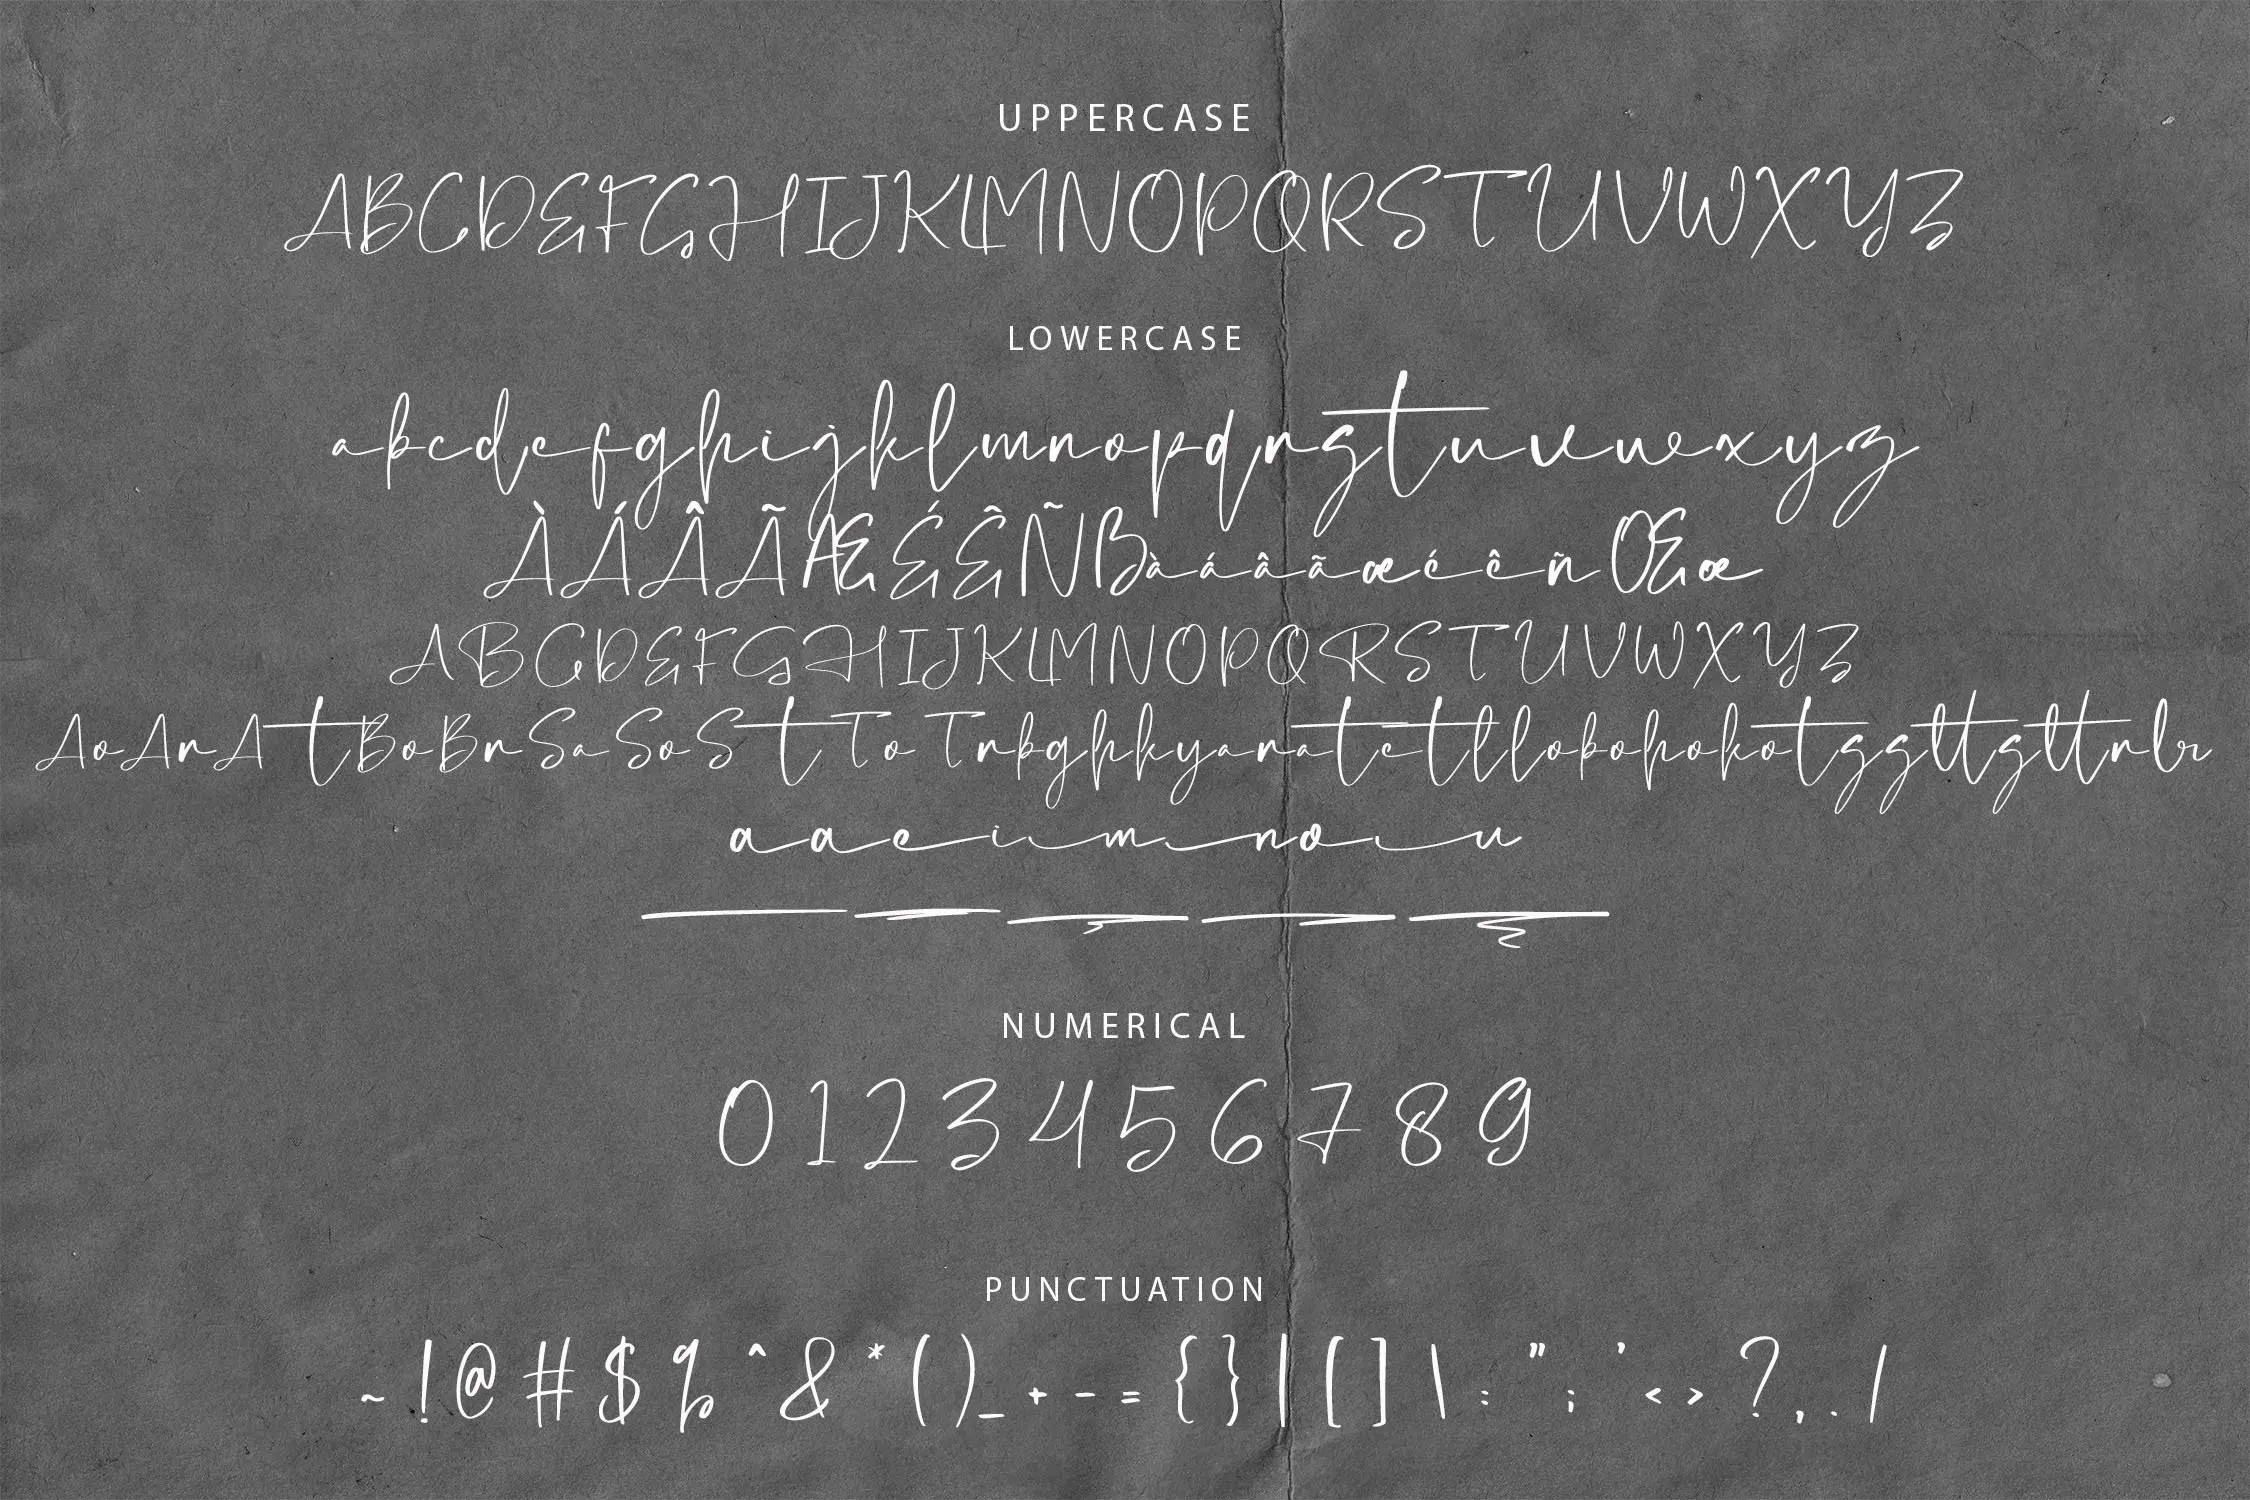 UPPERCASE
ABCDEFGHIJKLMNOPQRSTUVWXYZ
LOWERCASE
abcdefghijklmnopqrstuvwxyz
ÀÁÂÃÆÉÊÑßàáâãæéêñŒœ
ABCDEFGHIJKLMNOPQRSTUVWXYZ
AoArAtBoBrSaSoStToTrbghkyaratetllobohokotssttsttrlr
aaeimnoiu
NUMERICAL
0123456789
PUNCTUATION
~!@#$%^&*()_+-={}|[]\:";'<>?,./